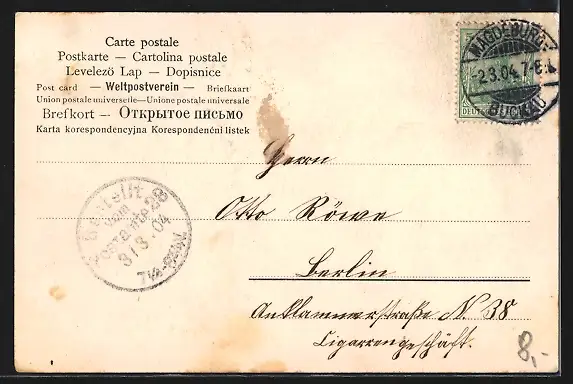 Carte postale
Postkarte — Cartolina postale
Levelező Lap — Dopisnice
Post card — Weltpostverein — Briefkaart
Union postale universelle—Unione postale universale
Brefkort — Открытое письмо
Karta korespondencyjna Korespondenční listek
MAGDEBURG-
2.3.04.7-8.
BUCKAU
Herrn
Otto Röwe
Berlin
Anklammerstraße N. 38
Cigarrengeschäft.
Bestellt
vom
Postamte
3/3.04
8,-